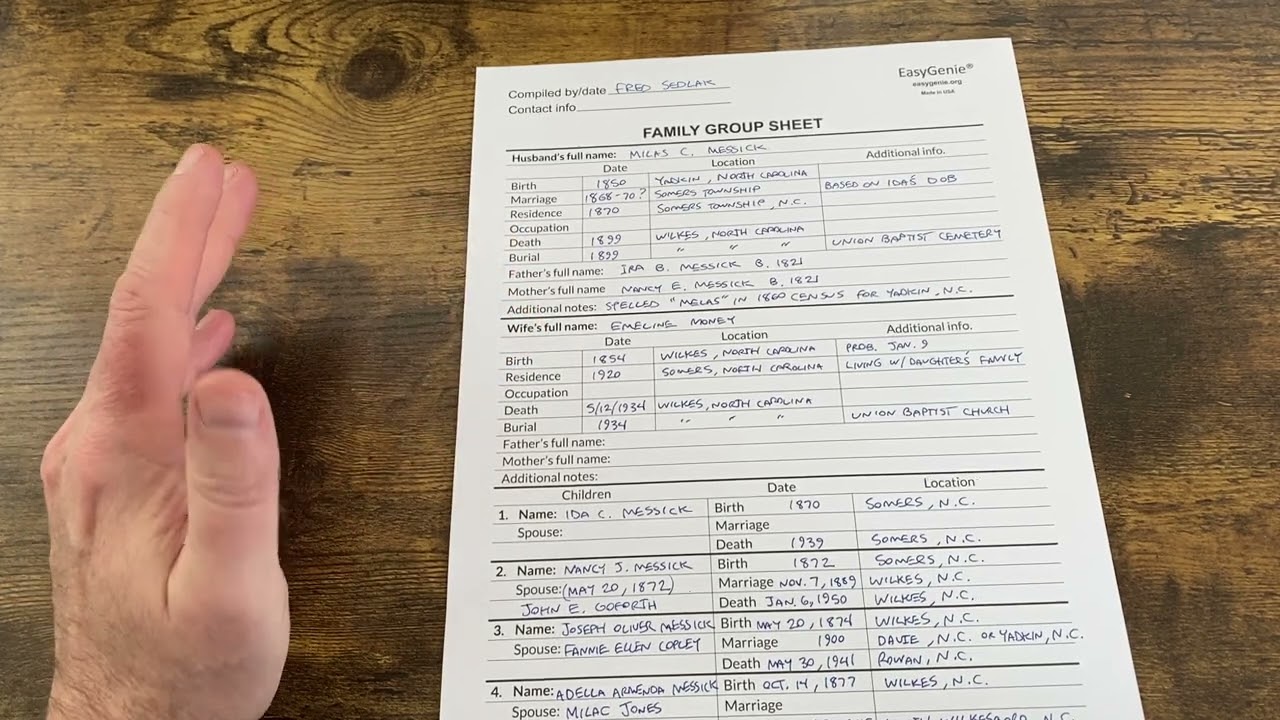 EasyGenie®
easygenie.org
Made in USA
Compiled by/date FRED SEDLAK
Contact info
FAMILY GROUP SHEET
Husband's full name: MILAS C. MESSICK
Date Location Additional info.
Birth 1850 YADKIN, NORTH CAROLINA
Marriage 1868-70? SOMERS TOWNSHIP BASED ON IDA'S DOB
Residence 1870 SOMERS TOWNSHIP, N.C.
Occupation
Death 1899 WILKES, NORTH CAROLINA
Burial 1899 " " " UNION BAPTIST CEMETERY
Father's full name: IRA B. MESSICK B. 1821
Mother's full name NANCY E. MESSICK B. 1821
Additional notes: SPELLED "MELAS" IN 1860 CENSUS FOR YADKIN, N.C.
Wife's full name: EMELINE MONEY
Date Location Additional info.
Birth 1854 WILKES, NORTH CAROLINA PROB. JAN. 9
Residence 1920 SOMERS, NORTH CAROLINA LIVING W/ DAUGHTER'S FAMILY
Occupation
Death 5/12/1934 WILKES, NORTH CAROLINA
Burial 1934 " " " UNION BAPTIST CHURCH
Father's full name:
Mother's full name:
Additional notes:
Children Date Location
1. Name: IDA C. MESSICK Birth 1870 SOMERS, N.C.
Spouse: Marriage
Death 1939 SOMERS, N.C.
2. Name: NANCY J. MESSICK Birth 1872 SOMERS, N.C.
Spouse: (MAY 20, 1872) Marriage NOV. 7, 1889 WILKES, N.C.
JOHN E. GOFORTH Death JAN. 6, 1950 WILKES, N.C.
3. Name: JOSEPH OLIVER MESSICK Birth MAY 20, 1874 WILKES, N.C.
Spouse: FANNIE ELLEN COPLEY Marriage 1900 DAVIE, N.C. OR YADKIN, N.C.
Death MAY 30, 1941 ROWAN, N.C.
4. Name: ADELLA ARMENDA MESSICK Birth OCT. 14, 1877 WILKES, N.C.
Spouse: MILAC JONES Marriage
N.C.